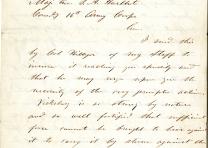 Maj. Gen. S. A. Hurlbut
Comdg 16th Army Corps
I send this
by Col. of my Staff to
insure it reaching you speedily and
that he may urge upon you the
necessity of the very prompt action
Vicksburg is so strong by nature
and so well fortified that sufficient
force cannot be brought to bear against
it to carry it by storm against the